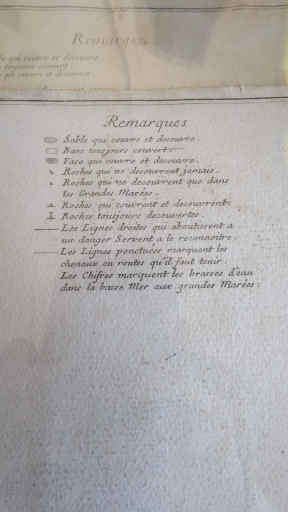 Remarques
qui couvre et decouvre
toujours couvert
qui couvre et decouvre
Remarques
Sable qui couvre et decouvre.
Banc toujours couvert.
Vase qui couvre et decouvre.
Roches qui ne decouvrent jamais.
Roches qui ne decouvrent que dans
les Grandes Marées.
Roches qui couvrent et decouvrent.
Roches toujours decouvertes.
Les Lignes droites qui aboutissent a
un danger Servent a le reconnoitre.
Les Lignes ponctuées marquent les
chenaux ou routes qu'il faut tenir.
Les Chifres marquent les brasses d'eau
dans la basse Mer aux grandes Marées.